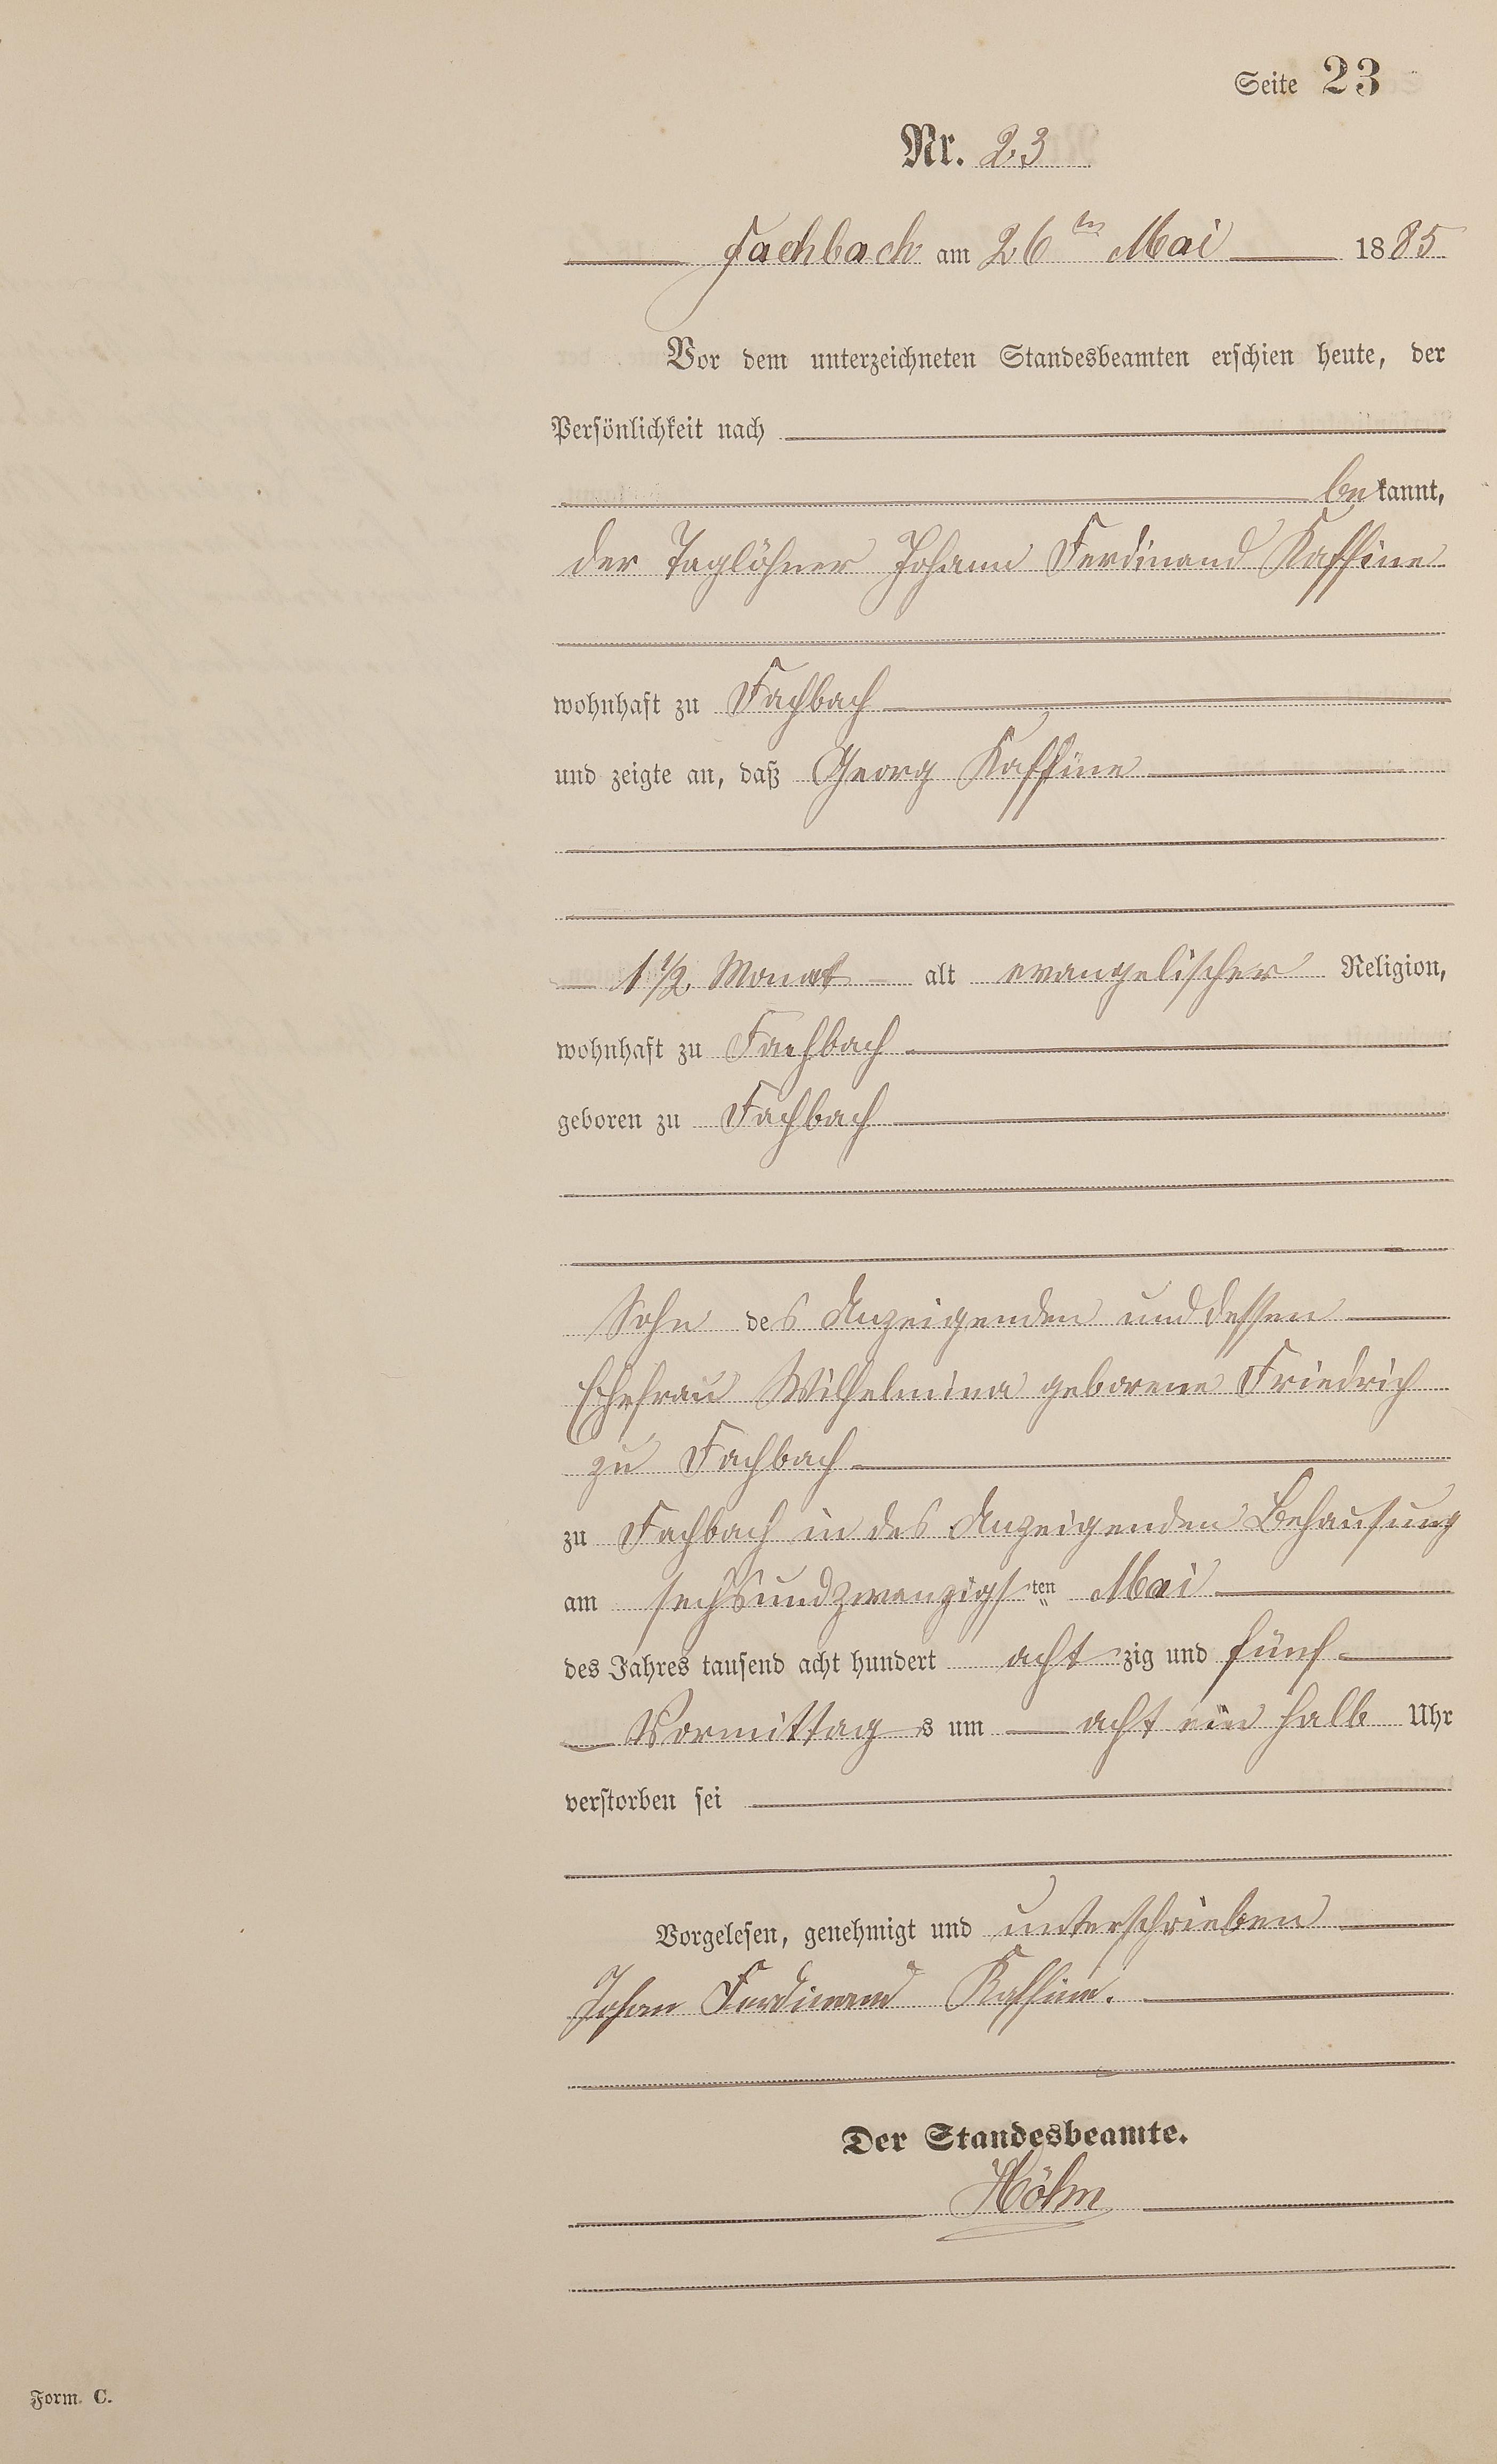 Seite 23
Nr. 23
Fachbach am 26ten Mai 1885
Vor dem unterzeichneten Standesbeamten erschien heute, der
Persönlichkeit nach
bekannt,
der Taglöhner Johann Ferdinand Kaffine
wohnhaft zu Fachbach
und zeigte an, daß Georg Kaffine
1 1/2 Monat alt evangelischer Religion,
wohnhaft zu Fachbach
geboren zu Fachbach
Sohn des Anzeigenden und dessen
Ehefrau Wilhelmina geborene Friedrich
zu Fachbach
zu Fachbach in des Anzeigenden Behausung
am sechsundzwanzigsten Mai
des Jahres tausend acht hundert achtzig und fünf
Vormittags um acht ein halb Uhr
verstorben sei
Vorgelesen, genehmigt und unterschrieben
Johan Ferdinand Kaffine.
Der Standesbeamte.
Höhn
Form. C.